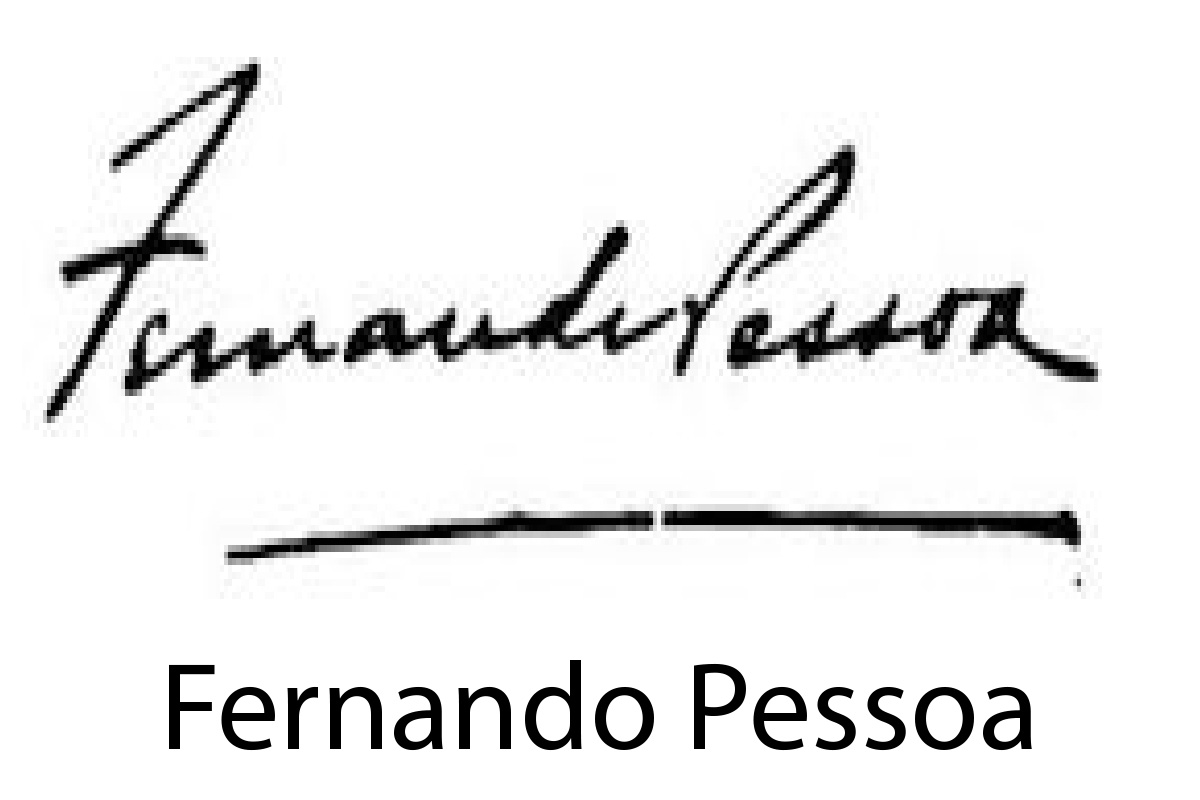 Fernando Pessoa
Fernando Pessoa